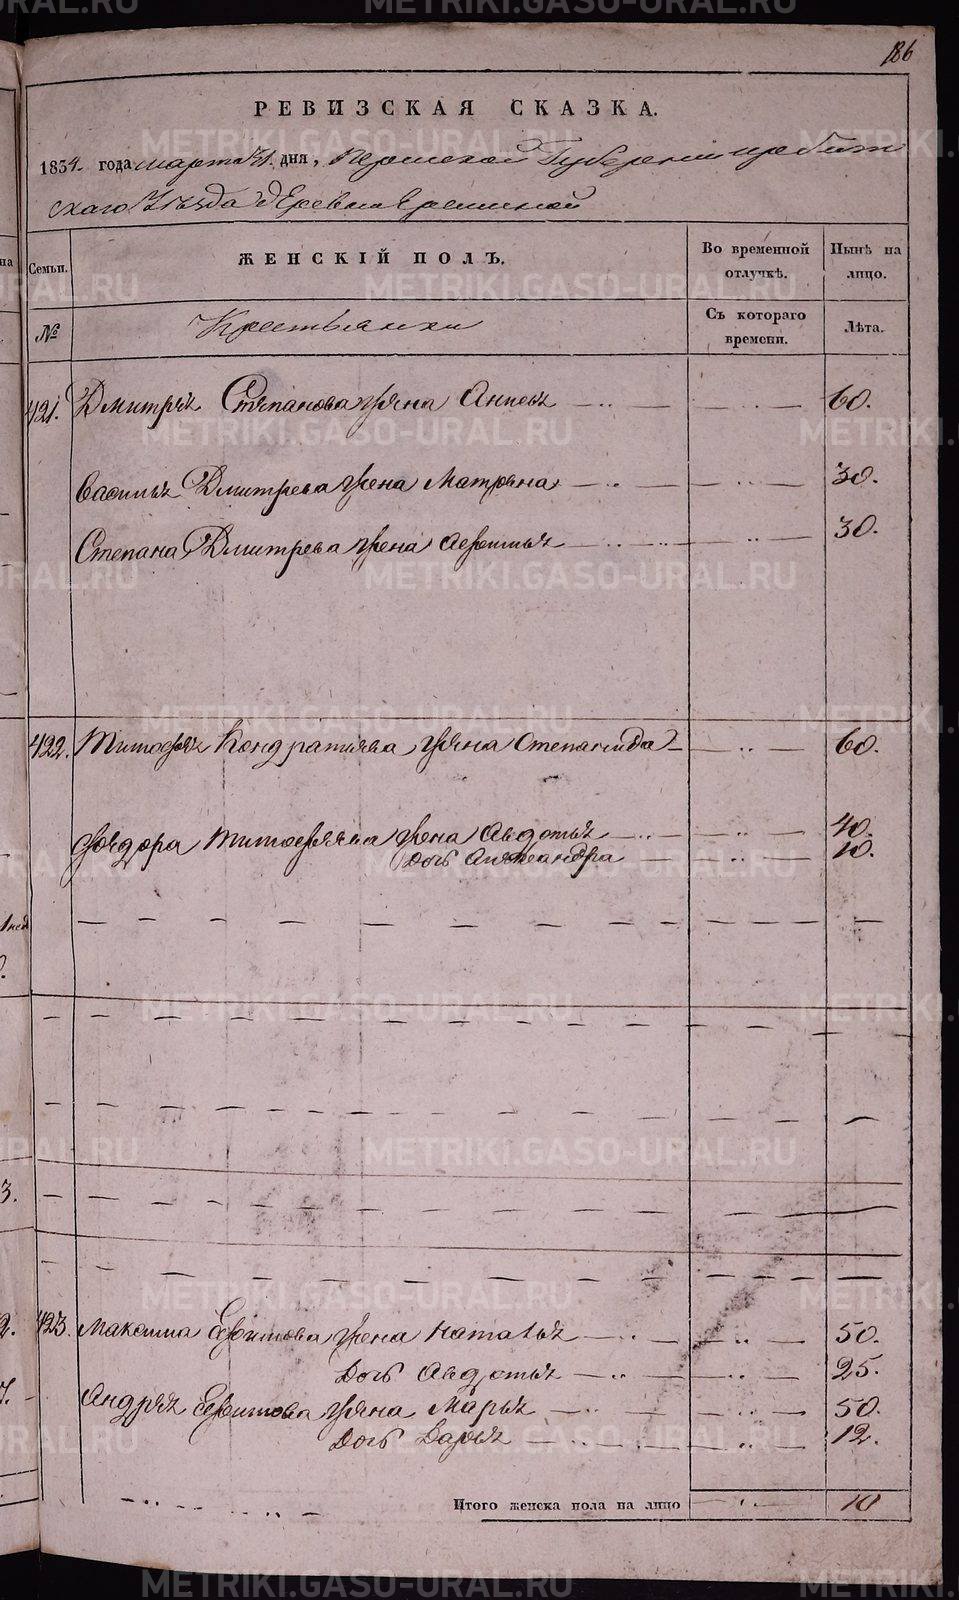 186
РЕВИЗСКАЯ СКАЗКА.
1834. года марта 31. дня, Пермской Губернии ирбит
скаго Уезда деревни Еремìной
Семьи. ЖЕНСКІЙ ПОЛЪ. Во временной отлучкѣ. Нынѣ на лицо.
№ Крестьянки Съ котораго времени. Лѣта.
421. Дмитрия Степанова жена Анисья 60.
Василья Дмитрева жена Матрена 30.
Степана Дмитрева жена Афимья 30.
422. Тимофея Кондратьева жена Степанида 60.
Федора Тимофеева жена Авдотья 40.
дочь Александра 10.
423. Максима жена Наталья 50.
Дочь Авдотья 25.
Андрея жена Марья 50.
Дочь Дарья 12.
Итого женска пола на лицо 10
METRIKI.GASO-URAL.RU